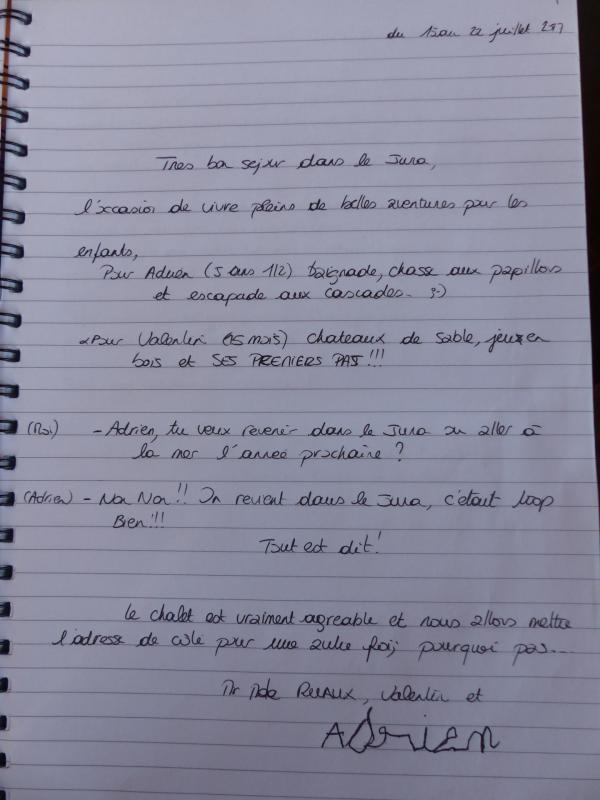 du 15 au 22 juillet 2017
Tres bon sejour dans le Jura,
l'occasion de vivre pleins de belles aventures pour les
enfants,
Pour Adrien (5 ans 1/2) baignade, chasse aux papillons
et escapade aux cascades. ;-)
Pour Valentin (15 mois) chateaux de sable, jeux en
bois et SES PREMIERS PAS !!!
(Moi) - Adrien, tu veux revenir dans le Jura ou aller à
la mer l'année prochaine ?
(Adrien) - Non Non !! On revient dans le Jura, c'était troop
Bien !!!
Tout est dit !
Le chalet est vraiment agreable et nous allons mettre
l'adresse de coté pour une autre fois, pourquoi pas....
Mr Mde, Valentin et
ADRIEN